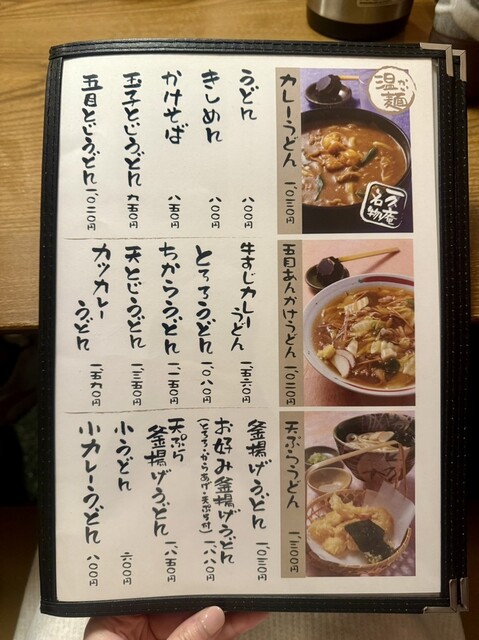 温か麺
一久庵
名物
カレーうどん 一、〇三〇円
うどん 八〇〇円
きしめん 八〇〇円
かけそば 八五〇円
玉子とじうどん 九五〇円
五目とじうどん 一、〇二〇円
五目あんかけうどん 一、〇二〇円
牛すじカレーうどん 一、五六〇円
とろろうどん 一、〇八〇円
ちからうどん 一、一五〇円
天とじうどん 一、三五〇円
カツカレーうどん 一、五九〇円
天ぷらうどん 一、三〇〇円
釜揚げうどん 一、〇三〇円
お好み釜揚げうどん 一、八八〇円
(とろろ・からあげ・天ぷら付)
天ぷら釜揚げうどん 一、八五〇円
小うどん 六〇〇円
小カレーうどん 八〇〇円